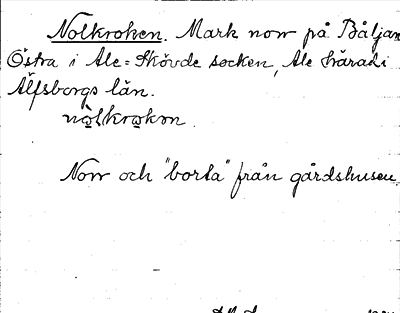 Nolkroken. Mark norr på Båljan
Östra i Ale-Skövde socken, Ale härad i
Älfsborgs län.
nòlkrokon.
Norr och "borta" från gårdshusen.